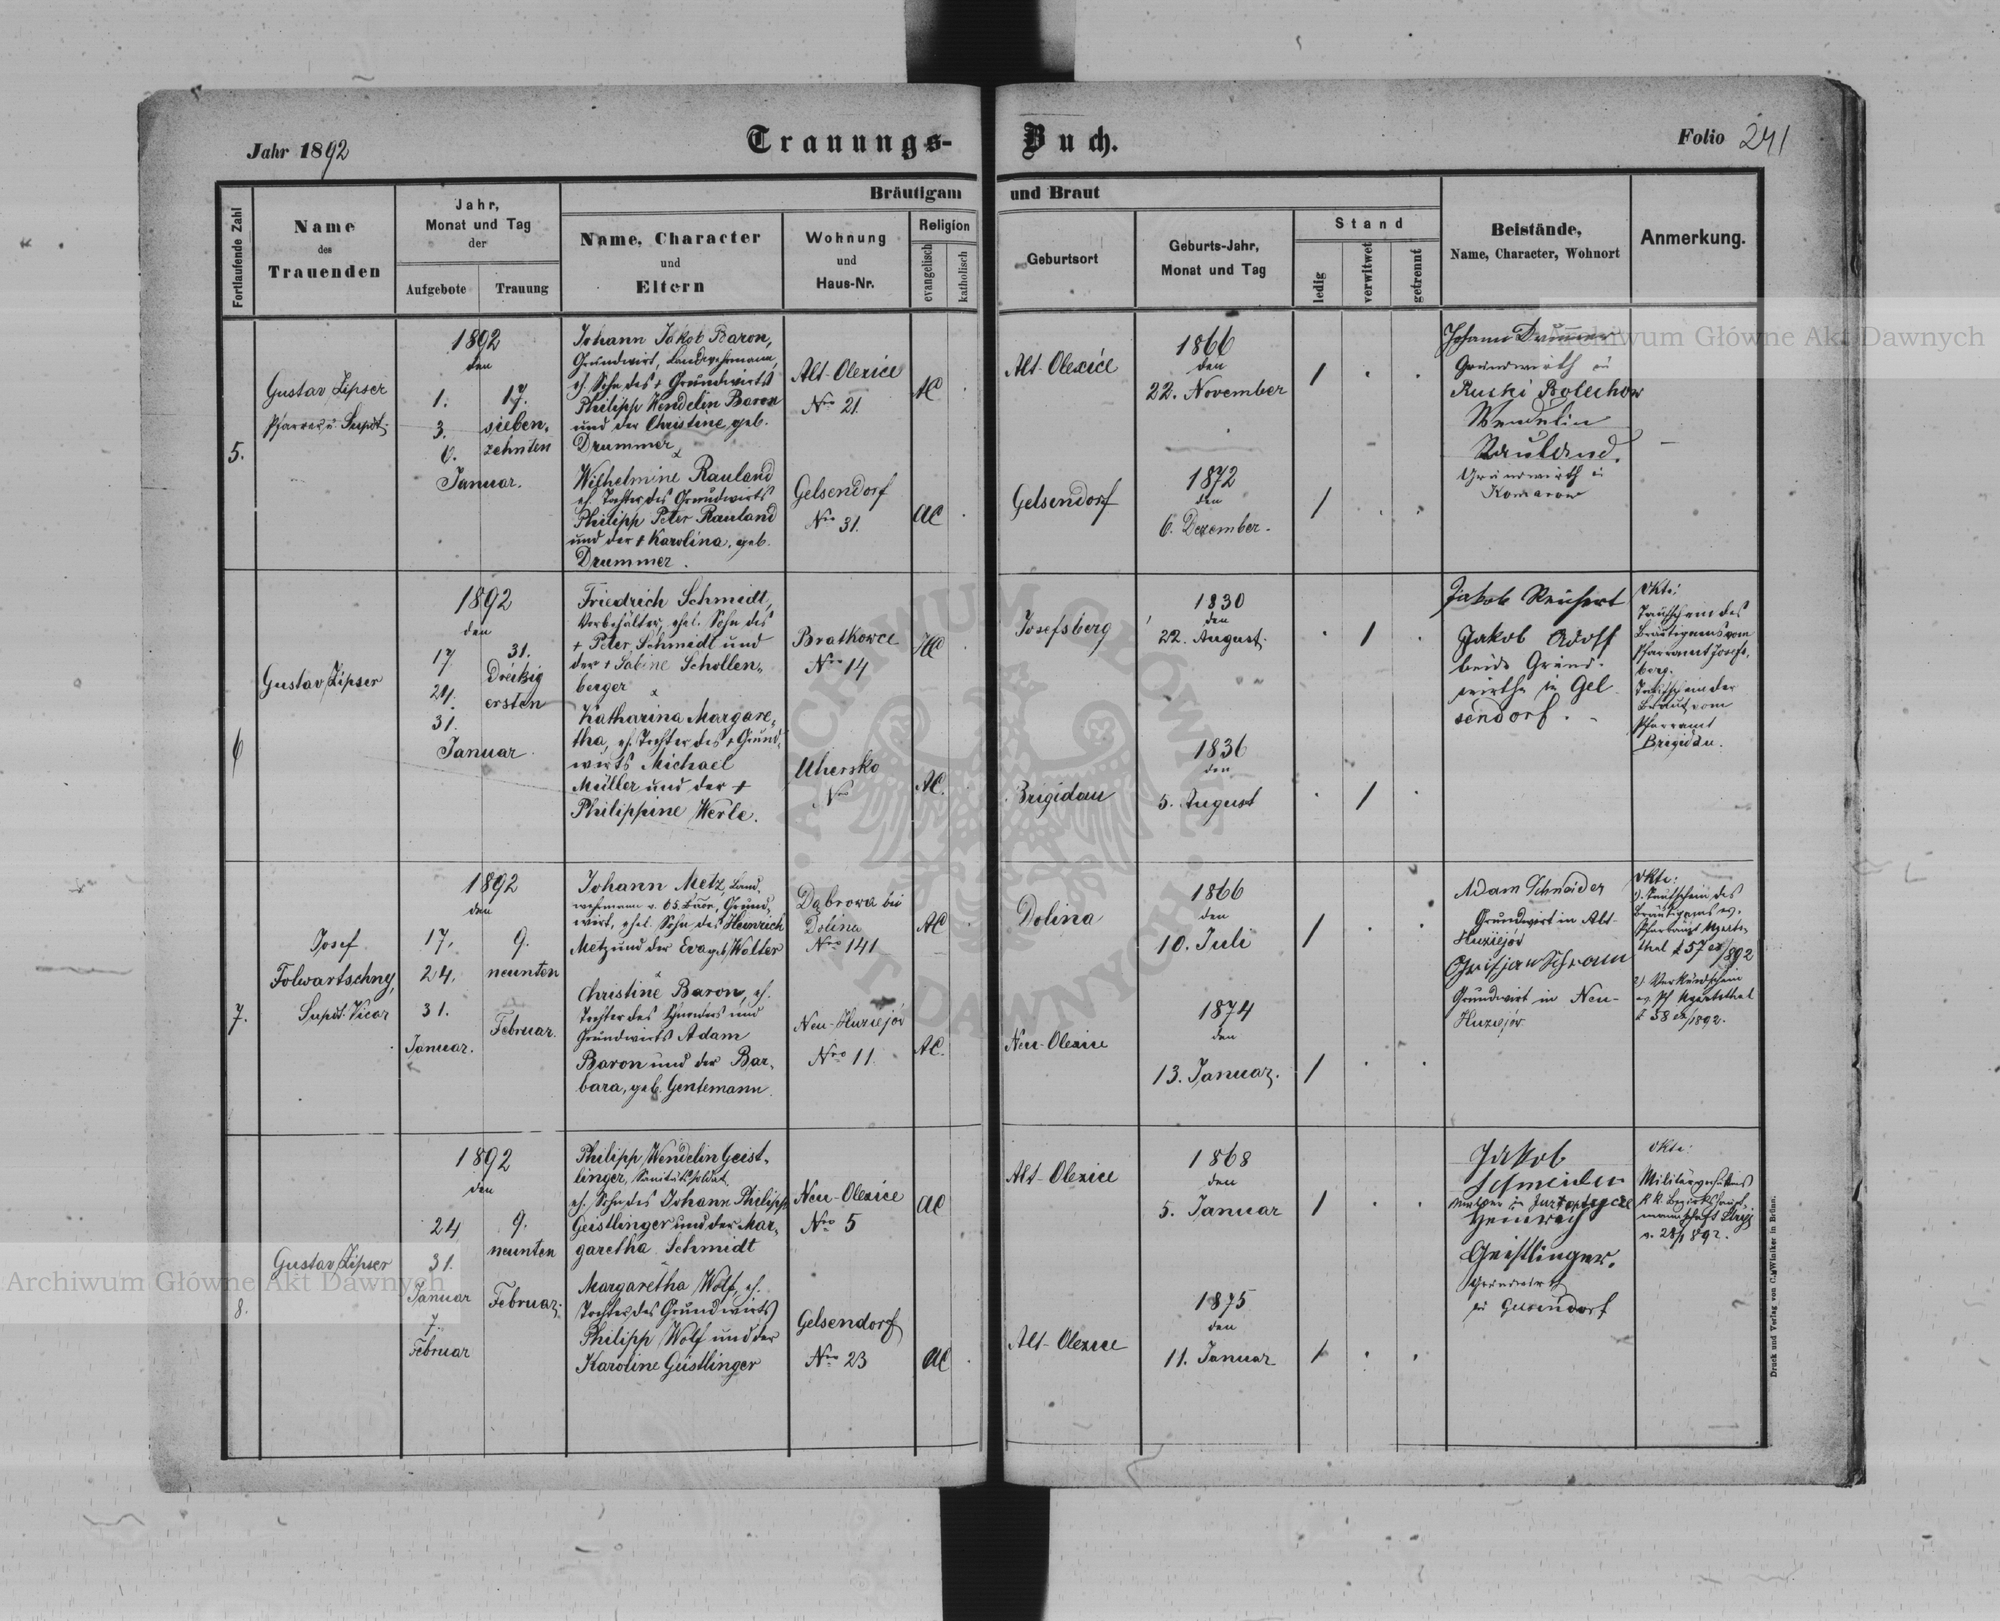 Jahr 1892
Trauungs-Buch.
Folio 241
Fortlaufende Zahl
Name
des
Trauenden
Jahr,
Monat und Tag
der
Aufgebote
Trauung
Bräutigam und Braut
Name, Character
und
Eltern
Wohnung
und
Haus-Nr.
Religion
evangelisch
katholisch
Geburtsort
Geburts-Jahr,
Monat und Tag
Stand
ledig
verwitwet
getrennt
Beistände,
Name, Character, Wohnort
Anmerkung.
5.
Gustav Zipser
Pfarrer u. Supdt.
1892
den
1.
3.
6.
Januar.
17.
sieben-
zehnten
Johann Jakob Baron,
Grundwirt, Landwehrmann,
eh. Sohn des + Grundwirts
Philipp Wendelin Baron
und der Christine, geb.
Drummer
Alt-Olexice
Nro 21.
AC
Alt-Olexice
1866
den
22. November
Wilhelmine Rauland
eh. Tochter des Grundwirts
Philipp Peter Rauland
und der + Karolina, geb.
Drummer.
Gelsendorf
Nro 31.
AC
Gelsendorf
1872
den
6. Dezember.
Johann Drummer
Grundwirth in
Ruski Bolechow
Wendelin
Rauland.
Grundwirth in
Komarow
6
Gustav Zipser
1892
den
17
24.
31.
Januar.
31.
Dreißig
ersten
Friedrich Schmidt,
Vorbehälter, ehel. Sohn des
+ Peter Schmidt und
der + Sabine Schollen-
berger
Bratkowce
Nro 14
AC
Josefsberg
1830
den
22. August.
Katharina Margare-
tha, eh. Tochter des + Grund-
wirts Michael
Müller und der +
Philippine Werle.
Uhersko
Nro
AC.
Brigidau
1836
den
5. August
Jakob Reichert
Jakob Adolf
beide Grund-
wirthe in Gel
sendorf.
Akte:
Taufschein des
Bräutigams vom
Pfarramt Josefs-
berg.
Taufschein der
Braut vom
Pfarramt
Brigidau.
7.
Josef
Folwartschny,
Supdt. Vicar
1892
den
17.
24.
31.
Januar.
9.
neunten
Februar.
Johann Metz, Land-
wehrmann v. 65. Baon, Grund-
wirt, ehel. Sohn des Heinrich
Metz und der Eva geb. Wolter
Dąbrowa bei
Dolina
Nro 141
AC
Dolina
1866
den
10. Juli
Christine Baron, eh.
Tochter des
Grundwirts Adam
Baron und der Bar-
bara, geb. Gentemann.
Neu-Huziejów
Nro 11.
AC.
Neu-Olexice
1874
den
13. Januar.
Adam Schneider
Grundwirt in Alt-
Huziejów
Christian Schramm
Grundwirt in Neu-
Huziejów
Akte:
1). Taufschein des
Bräutigams ev.
57 ex/892
2). Verkündschein
58 ex/1892.
8.
Gustav Zipser
1892
den
24
31.
Januar
7.
Februar
9.
neunten
Februar.
Philipp Wendelin Geist-
linger, Sanitätssoldat,
eh. Sohn des Johann Philipp
Geistlinger und der Mar-
garetha Schmidt
Neu-Olexice
Nro 5
AC
Alt-Olexice
1868
den
5. Januar
Margaretha Wolf, eh.
Tochter des Grundwirts
Philipp Wolf und der
Karoline Geistlinger
Gelsendorf
Nro 23
AC
Alt-Olexice
1875
den
11. Januar
Jakob
Schneider
Heinrich
Geistlinger.
Grundwirth
in Gelsendorf
Akte:
k. k. Bezirkshaupt-
mannschaft Stryj
Druck und Verlag von C. Winiker in Brünn.
Archiwum Główne Akt Dawnych
Archiwum Główne Akt Dawnych
ARCHIWUM GŁÓWNE AKT DAWNYCH